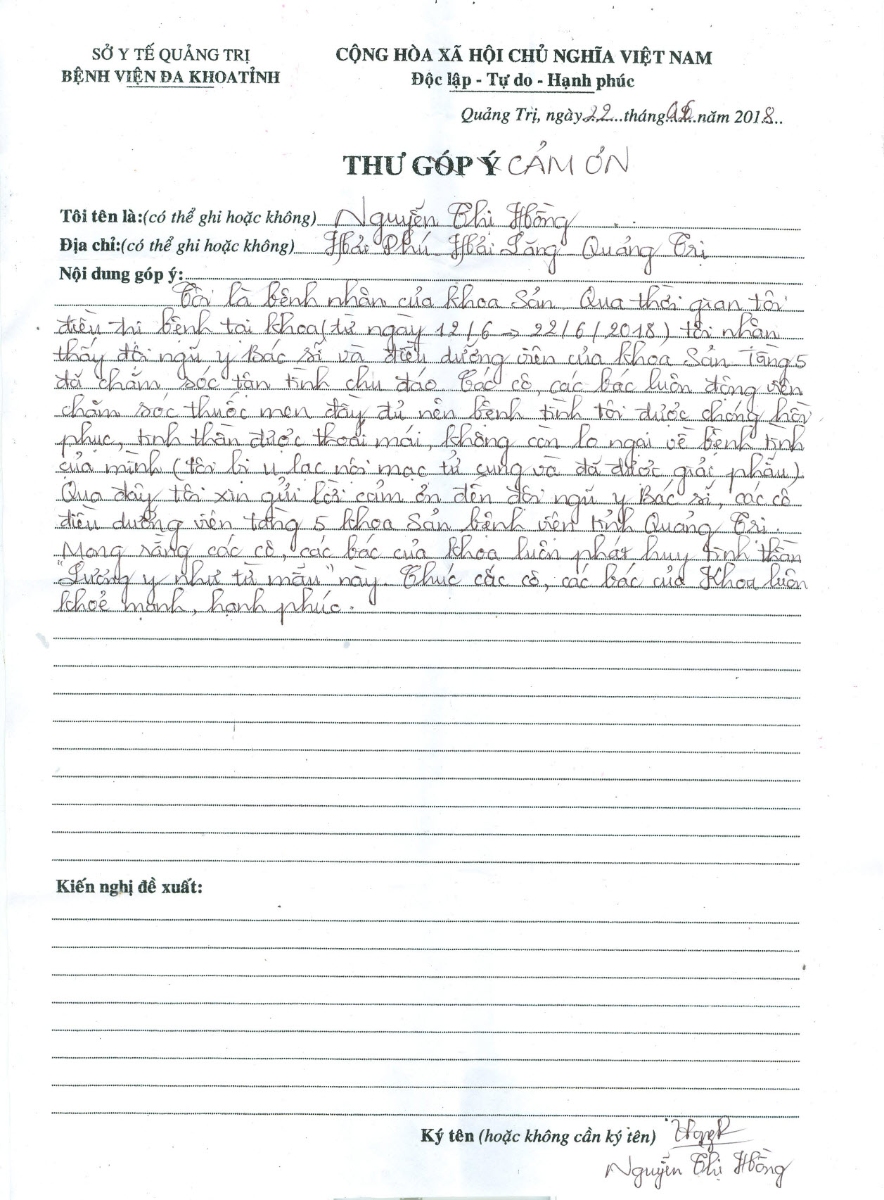 SỞ Y TẾ QUẢNG TRỊ
BỆNH VIỆN ĐA KHOA TỈNH
CỘNG HÒA XÃ HỘI CHỦ NGHĨA VIỆT NAM
Độc lập - Tự do - Hạnh phúc
Quảng Trị, ngày 22 tháng 06 năm 2018
THƯ GÓP Ý CẢM ƠN
Tôi tên là:(có thể ghi hoặc không) Nguyễn Thị Hồng
Địa chỉ:(có thể ghi hoặc không) Hải Phú Hải Lăng Quảng Trị
Nội dung góp ý:
Tôi là bệnh nhân của khoa Sản. Qua thời gian tôi
điều trị bệnh tại khoa (từ ngày 12/6 → 22/6/2018) tôi nhận
thấy đội ngũ y Bác sĩ và điều dưỡng viên của khoa Sản Tầng 5
đã chăm sóc tận tình chu đáo. Các cô, các bác luôn động viên
chăm sóc thuốc men đầy đủ nên bệnh tình tôi được chóng hồi
phục, tinh thần được thoải mái, không còn lo ngại về bệnh tình
của mình (tôi bị u lạc nội mạc tử cung và đã được giải phẫu)
Qua đây tôi xin gửi lời cảm ơn đến đội ngũ y Bác sĩ, các cô
điều dưỡng viên tầng 5 khoa Sản bệnh viện tỉnh Quảng Trị.
Mong rằng các cô, các bác của khoa luôn phát huy tinh thần
"Lương y như từ mẫu" này. Chúc các cô, các bác của Khoa luôn
khoẻ mạnh, hạnh phúc.
Kiến nghị đề xuất:
Ký tên (hoặc không cần ký tên)
Nguyễn Thị Hồng